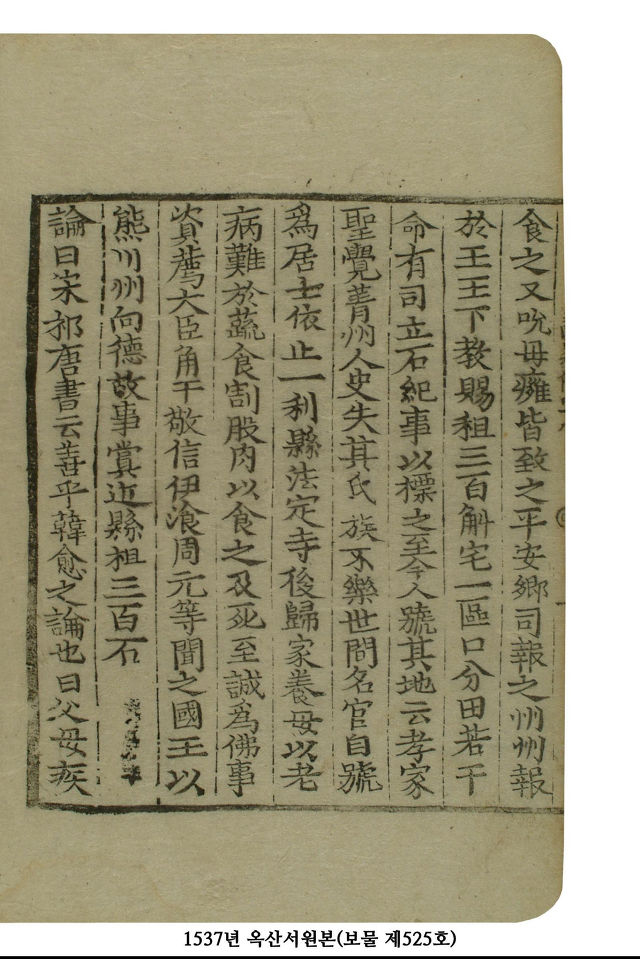 食之又吮母癰皆致之平安鄉司報之州州報
於王王下教賜租三百斛宅一區口分田若干
命有司立石紀事以標之至今人號其地云孝家
聖覺菁州人史失其氏族不樂世間名官自號
爲居士依止一利縣法定寺後歸家養母以老
病難於蔬食割股肉以食之及死至誠爲佛事
資薦大臣角干敬信伊湌周元等聞之國王以
熊川州向德故事賞近縣租三百石
論曰宋祁唐書云善乎韓愈之論也曰父母疾
1537년 옥산서원본(보물 제525호)